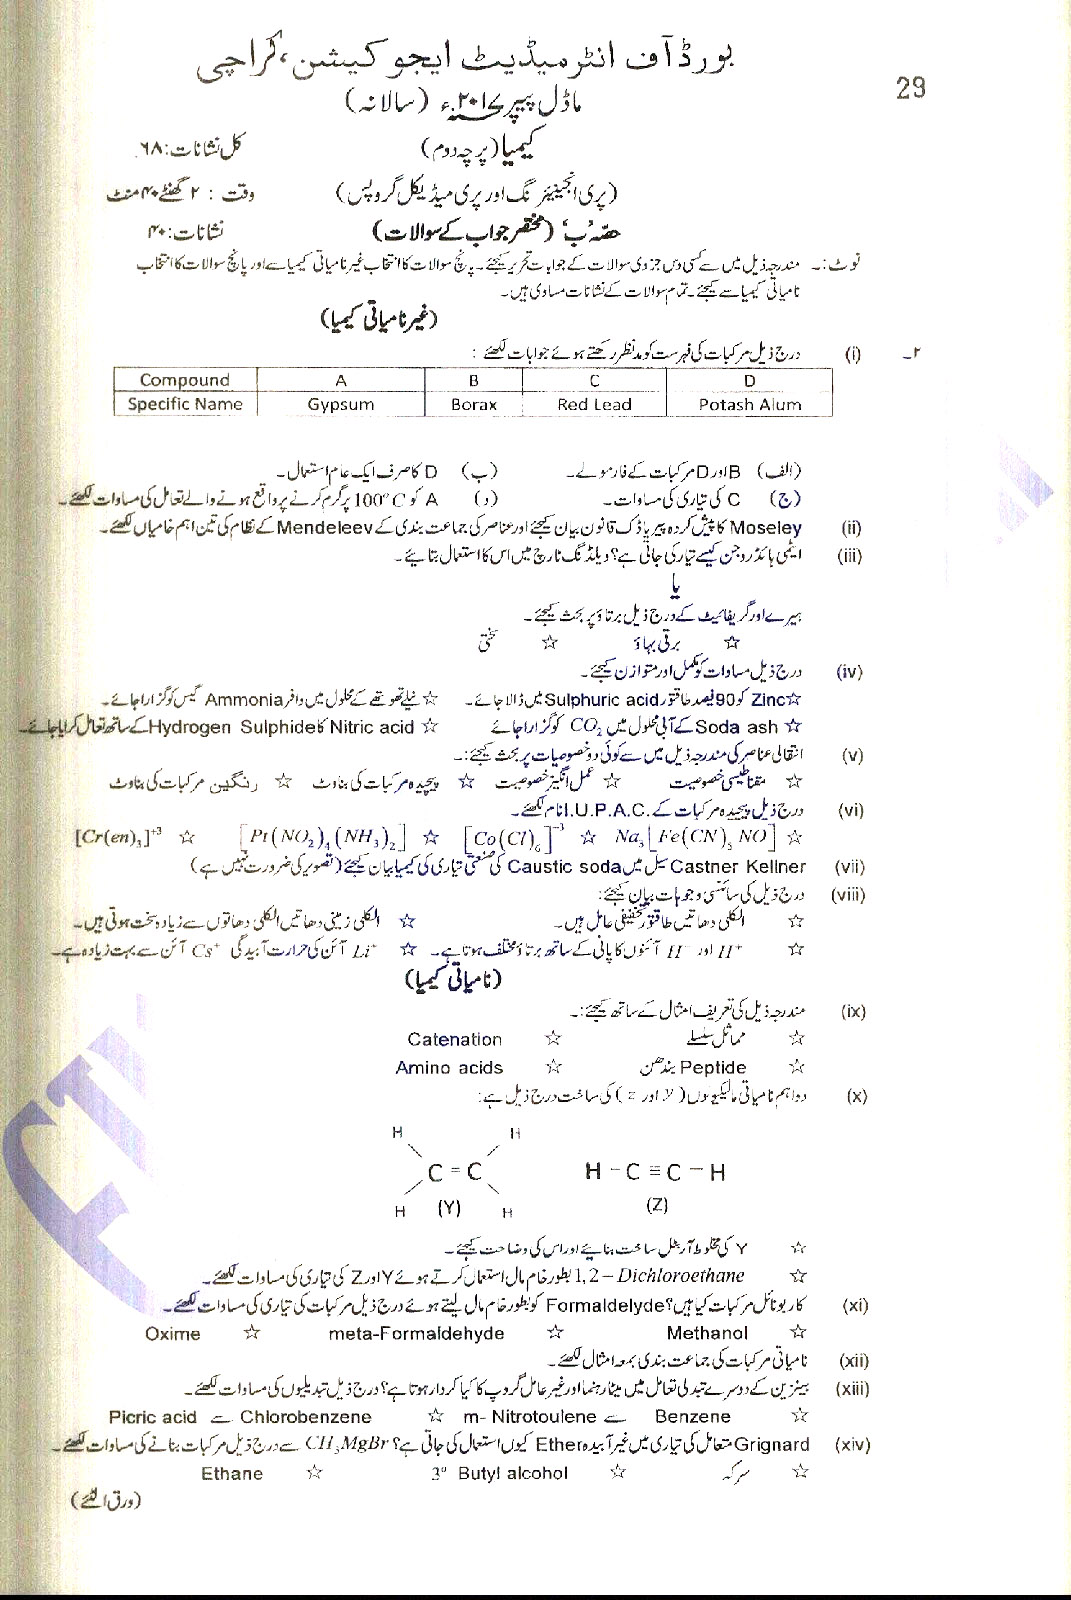 بورڈ آف انٹرمیڈیٹ ایجوکیشن، کراچی
29
ماڈل پیپر ۲۰۱۷ء (سالانہ)
کیمیا (پرچہ دوم) کل نشانات: ۶۸
(پری انجینئرنگ اور پری میڈیکل گروپس) وقت : ۲ گھنٹے ۴۰ منٹ
حصّہ 'ب' (مختصر جواب کے سوالات) نشانات: ۴۰
نوٹ:۔ مندرجہ ذیل میں سے کسی دس جزوی سوالات کے جوابات تحریر کیجئے۔ پانچ سوالات کا انتخاب غیر نامیاتی کیمیا سے اور پانچ سوالات کا انتخاب
نامیاتی کیمیا سے کیجئے۔ تمام سوالات کے نشانات مساوی ہیں۔
(غیر نامیاتی کیمیا)
۲۔ (i) درج ذیل مرکبات کی فہرست کو مدنظر رکھتے ہوئے جوابات لکھئے :
Compound A B C D
Specific Name Gypsum Borax Red Lead Potash Alum
(الف) B اور D مرکبات کے فارمولے۔ (ب) D کا صرف ایک عام استعمال۔
(ج) C کی تیاری کی مساوات۔ (د) A کو 100°C پر گرم کرنے پر واقع ہونے والے تعامل کی مساوات لکھئے۔
(ii) Moseley کا پیش کردہ پیریاڈک قانون بیان کیجئے اور عناصر کی جماعت بندی کے Mendeleev کے نظام کی تین اہم خامیاں لکھئے۔
(iii) ایٹمی ہائڈروجن کیسے تیار کی جاتی ہے؟ ویلڈنگ ٹارچ میں اس کا استعمال بتائیے۔
یا
ہیرے اور گریفائیٹ کے درج ذیل برتاؤ پر بحث کیجئے۔
☆ برقی بہاؤ ☆ سختی
(iv) درج ذیل مساوات کو مکمل اور متوازن کیجئے۔
☆ Zinc کو 90 فیصد طاقتور Sulphuric acid میں ڈالا جائے۔ ☆ نیلے تھوتھے کے محلول میں وافر Ammonia گیس کو گزارا جائے۔
☆ Soda ash کے آبی محلول میں CO₂ کو گزارا جائے ☆ Nitric acid کا Hydrogen Sulphide کے ساتھ تعامل کرایا جائے۔
(v) انتقالی عناصر کی مندرجہ ذیل میں سے کوئی دو خصوصیات پر بحث کیجئے:۔
☆ مقناطیسی خصوصیت ☆ عمل انگیز خصوصیت ☆ پیچیدہ مرکبات کی بناوٹ ☆ رنگین مرکبات کی بناوٹ
(vi) درج ذیل پیچیدہ مرکبات کے I.U.P.A.C. نام لکھئے۔
☆ Na₃[Fe(CN)₅ NO] ☆ [Co(Cl)₆]⁻³ ☆ [Pt(NO₂)₄(NH₃)₂] ☆ [Cr(en)₃]⁺³
(vii) Castner Kellner سیل میں Caustic soda کی صنعتی تیاری کی کیمیا بیان کیجئے (تصویر کی ضرورت نہیں ہے)
(viii) درج ذیل کی سائنسی وجوہات بیان کیجئے:
☆ الکلی دھاتیں طاقتور تخفیفی عامل ہیں۔ ☆ الکلی زمینی دھاتیں الکلی دھاتوں سے زیادہ سخت ہوتی ہیں۔
☆ H⁺ اور H⁻ آئنوں کا پانی کے ساتھ برتاؤ مختلف ہوتا ہے۔ ☆ Li⁺ آئن کی حرارت آبیدگی Cs⁺ آئن سے بہت زیادہ ہے۔
(نامیاتی کیمیا)
(ix) مندرجہ ذیل کی تعریف امثال کے ساتھ کیجئے:۔
☆ مماثل سلسلے ☆ Catenation
☆ Peptide بندھن ☆ Amino acids
(x) دو اہم نامیاتی مالیکیولوں (y اور z) کی ساخت درج ذیل ہے:
H H
C = C H – C ≡ C – H
H (Y) H (Z)
☆ Y کی مخلوط آربٹل ساخت بنائیے اور اس کی وضاحت کیجئے۔
☆ 1, 2 – Dichloroethane بطور خام مال استعمال کرتے ہوئے Y اور Z کی تیاری کی مساوات لکھئے۔
(xi) کاربونائل مرکبات کیا ہیں؟ Formaldelyde کو بطور خام مال لیتے ہوئے درج ذیل مرکبات کی تیاری کی مساوات لکھئے۔
☆ Methanol ☆ meta-Formaldehyde ☆ Oxime
(xii) نامیاتی مرکبات کی جماعت بندی بمعہ امثال لکھئے۔
(xiii) بینزین کے دوسرے تبدلی تعامل میں میٹا رہنما اور غیر عامل گروپ کا کیا کردار ہوتا ہے؟ درج ذیل تبدیلیوں کی مساوات لکھئے۔
☆ Benzene سے m- Nitrotoulene ☆ Chlorobenzene سے Picric acid
(xiv) Grignard متعامل کی تیاری میں غیر آبیدہ Ether کیوں استعمال کی جاتی ہے؟ CH₃MgBr سے درج ذیل مرکبات بنانے کی مساوات لکھئے۔
☆ سرکہ ☆ 3° Butyl alcohol ☆ Ethane
(ورق الٹئے)